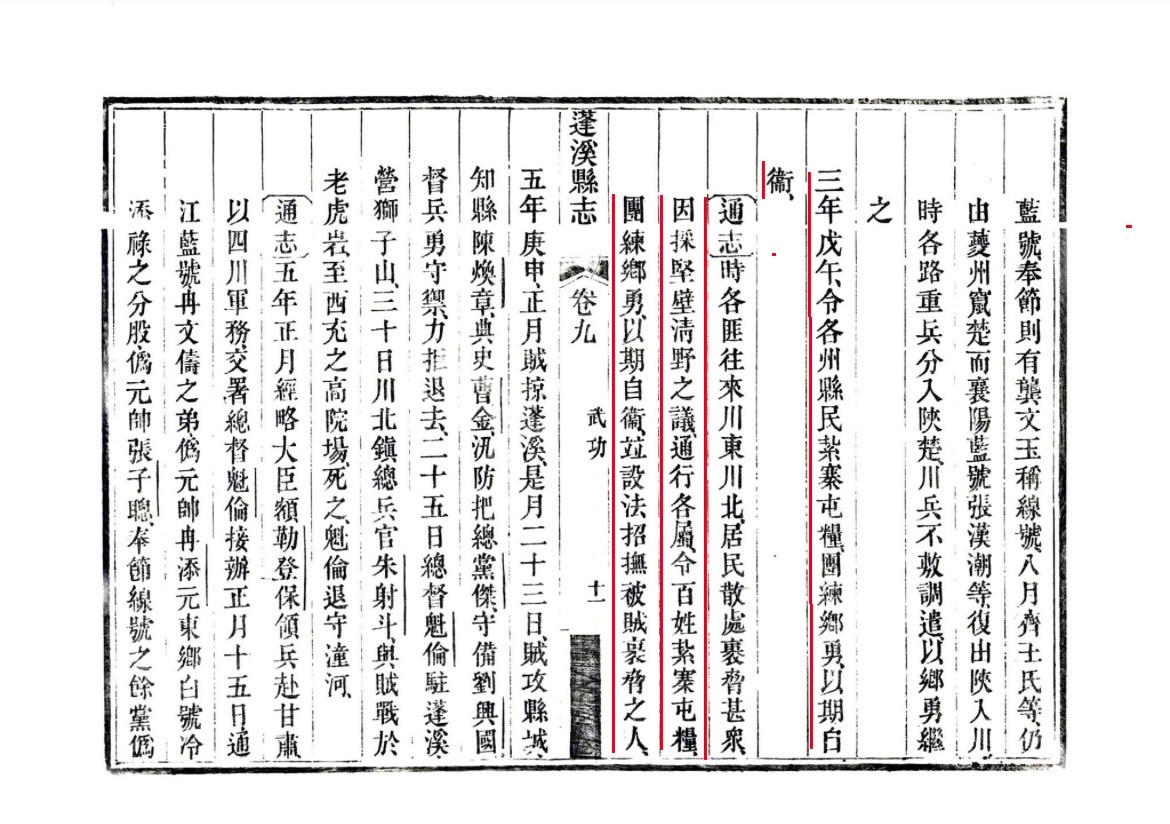 藍號奉節則有龔文玉稱線號、八月齊王氏等仍
由夔州竄楚而襄陽藍號張漢潮等復出陝入川、
時各路重兵分入陝楚、川兵不敷調遣、以鄉勇繼
之
三年戊午、令各州縣民紮寨屯糧、團練鄉勇、以期自
衞、
通志時各匪往來川東川北、居民散處裹脅甚衆、
因採堅壁清野之議、通行各屬、令百姓紮寨屯糧、
團練鄉勇、以期自衞、竝設法招撫被賊裹脅之人、
蓬溪縣志 卷九 武功 十一
五年庚申、正月賊掠蓬溪、是月二十三日、賊攻縣城、
知縣陳煥章、典史曹金、汛防把總黨傑、守備劉興國
督兵勇守禦、力拒退去、二十五日總督魁倫駐蓬溪、
營獅子山、三十日川北鎭總兵官朱射斗、與賊戰於
老虎岩、至西充之高院場、死之、魁倫退守潼河、
通志五年正月經略大臣額勒登保領兵赴甘肅
以四川軍務交署總督魁倫接辦正月十五日、通
江藍號冉文儔之弟僞元帥冉添元東鄉白號冷
添祿之分股、僞元帥張子聰、奉節線號之餘黨僞